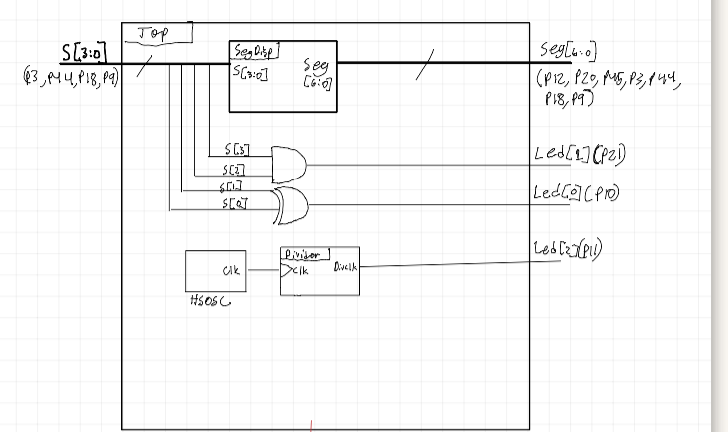 Top
S[3:0]
(P3, P44, P18, P9)
SegDisp
S[3:0]
Seg
[6:0]
Seg[6:0]
(P12, P20, P45, P3, P44,
P18, P9)
S[3]
S[2]
S[1]
S[0]
Led[1](P21)
Led[0](P10)
Clk
HSOSC
Divider
clk
Divclk
Led[2](P11)